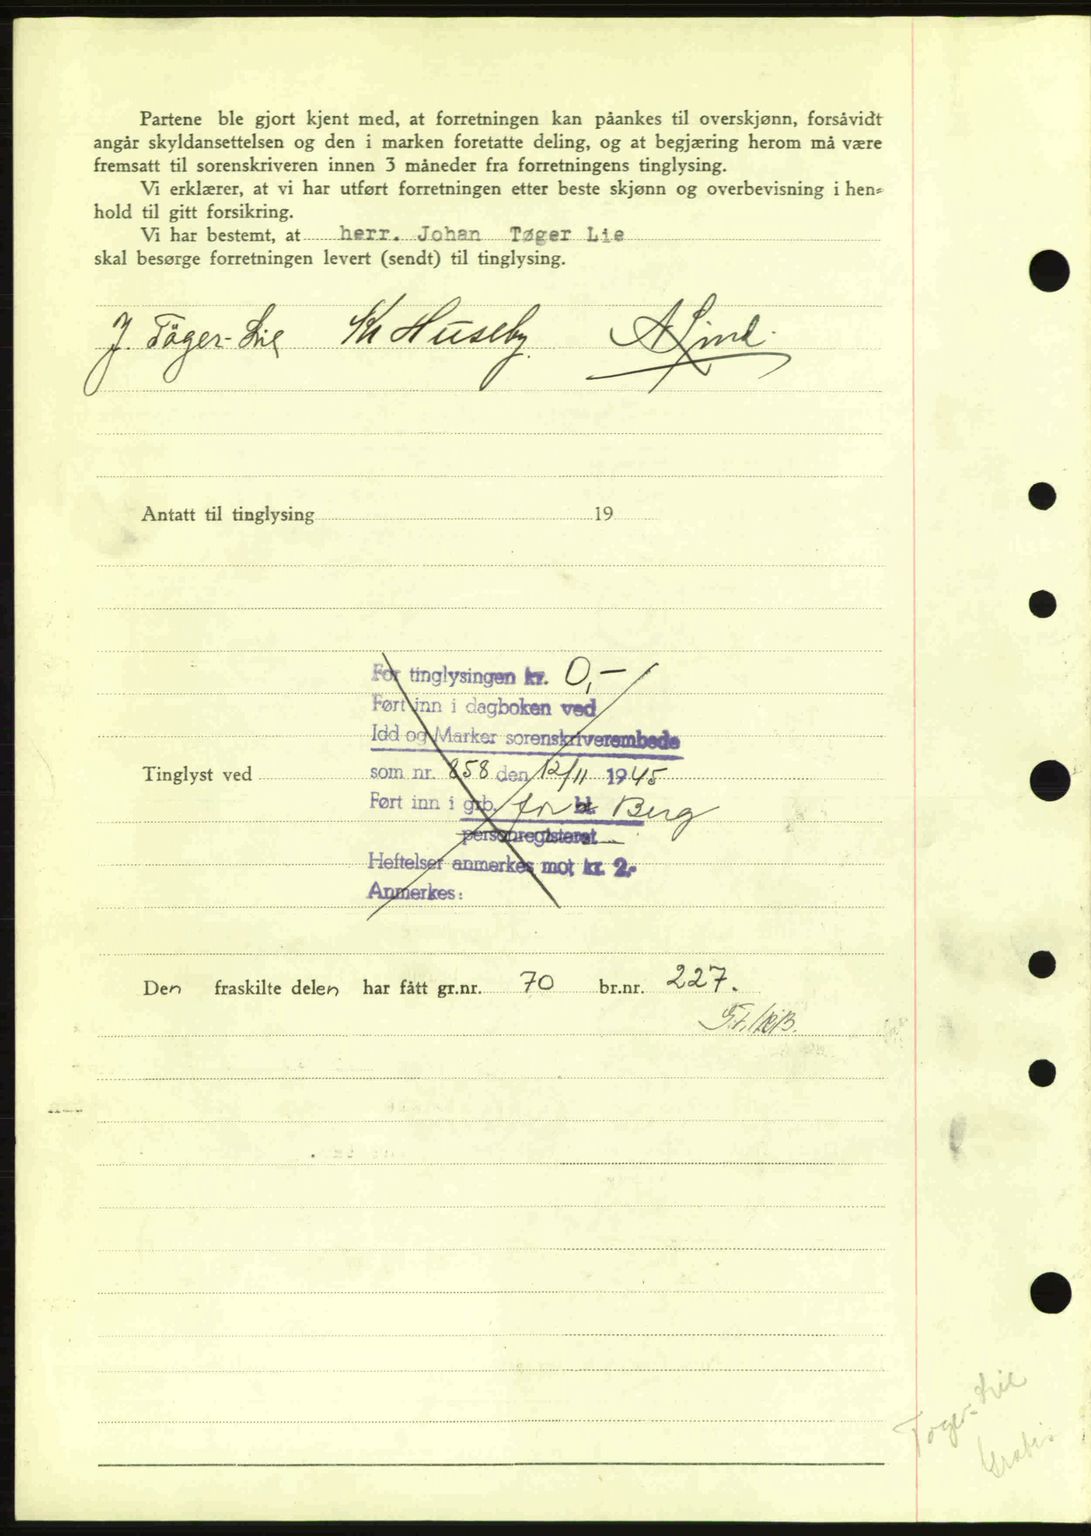 Partene ble gjort kjent med, at forretningen kan påankes til overskjønn, forsåvidt
angår skyldansettelsen og den i marken foretatte deling, og at begjæring herom må være
fremsatt til sorenskriveren innen 3 måneder fra forretningens tinglysing.
Vi erklærer, at vi har utført forretningen etter beste skjønn og overbevisning i hen=
hold til gitt forsikring.
Vi har bestemt, at herr. Johan Tøger Lie
skal besørge forretningen levert (sendt) til tinglysing.
J. Töger-Lie Kr Huseby. A Lind.
Antatt til tinglysing 19
For tinglysingen kr. 0,-
Ført inn i dagboken ved
Idd og Marker sorenskriverembede
Tinglyst ved som nr. 858 den 12/11 1945
Ført inn i grb. for bl. Berg
personregisteret
Heftelser anmerkes mot kr. 2.-
Anmerkes:
Den fraskilte delen har fått gr.nr. 70 br.nr. 227.
Töger-Lie
Gratis